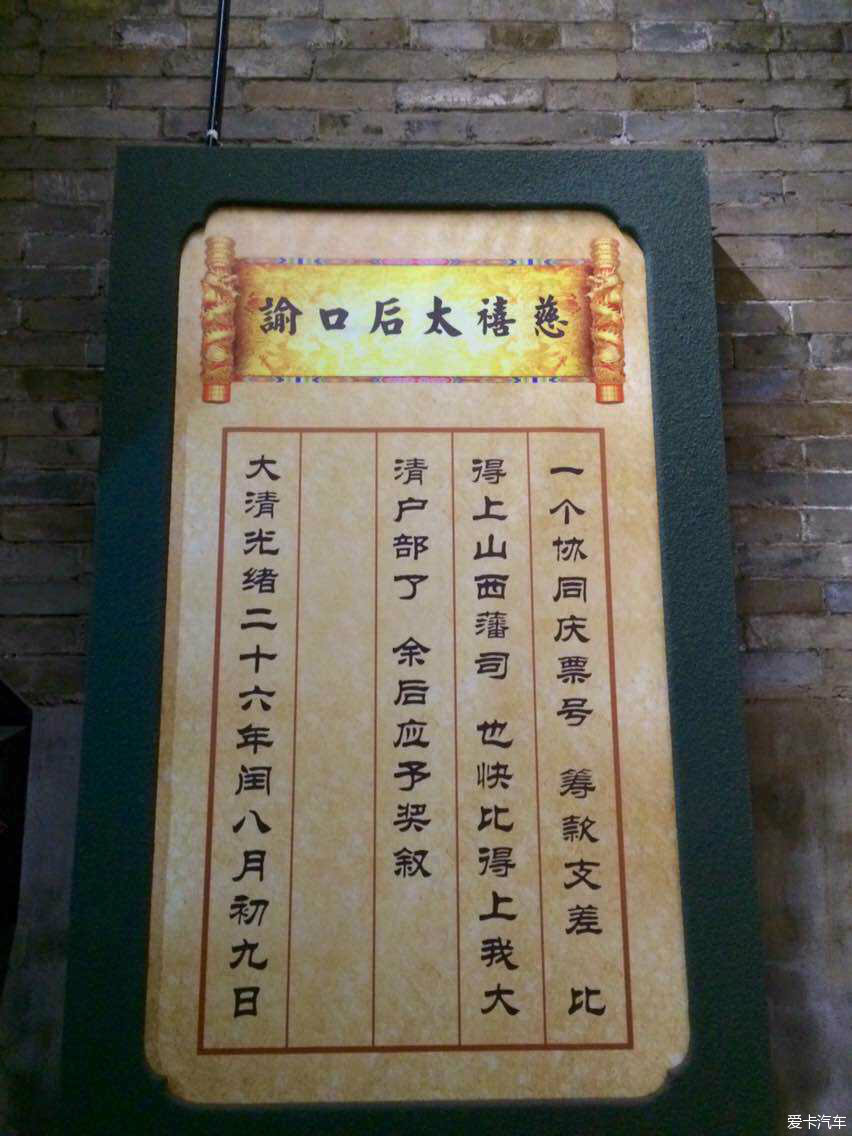 慈禧太后口諭
一个协同庆票号 筹款支差 比
得上山西藩司 也快比得上我大
清户部了 余后应予奖叙
大清光绪二十六年闰八月初九日
爱卡汽车